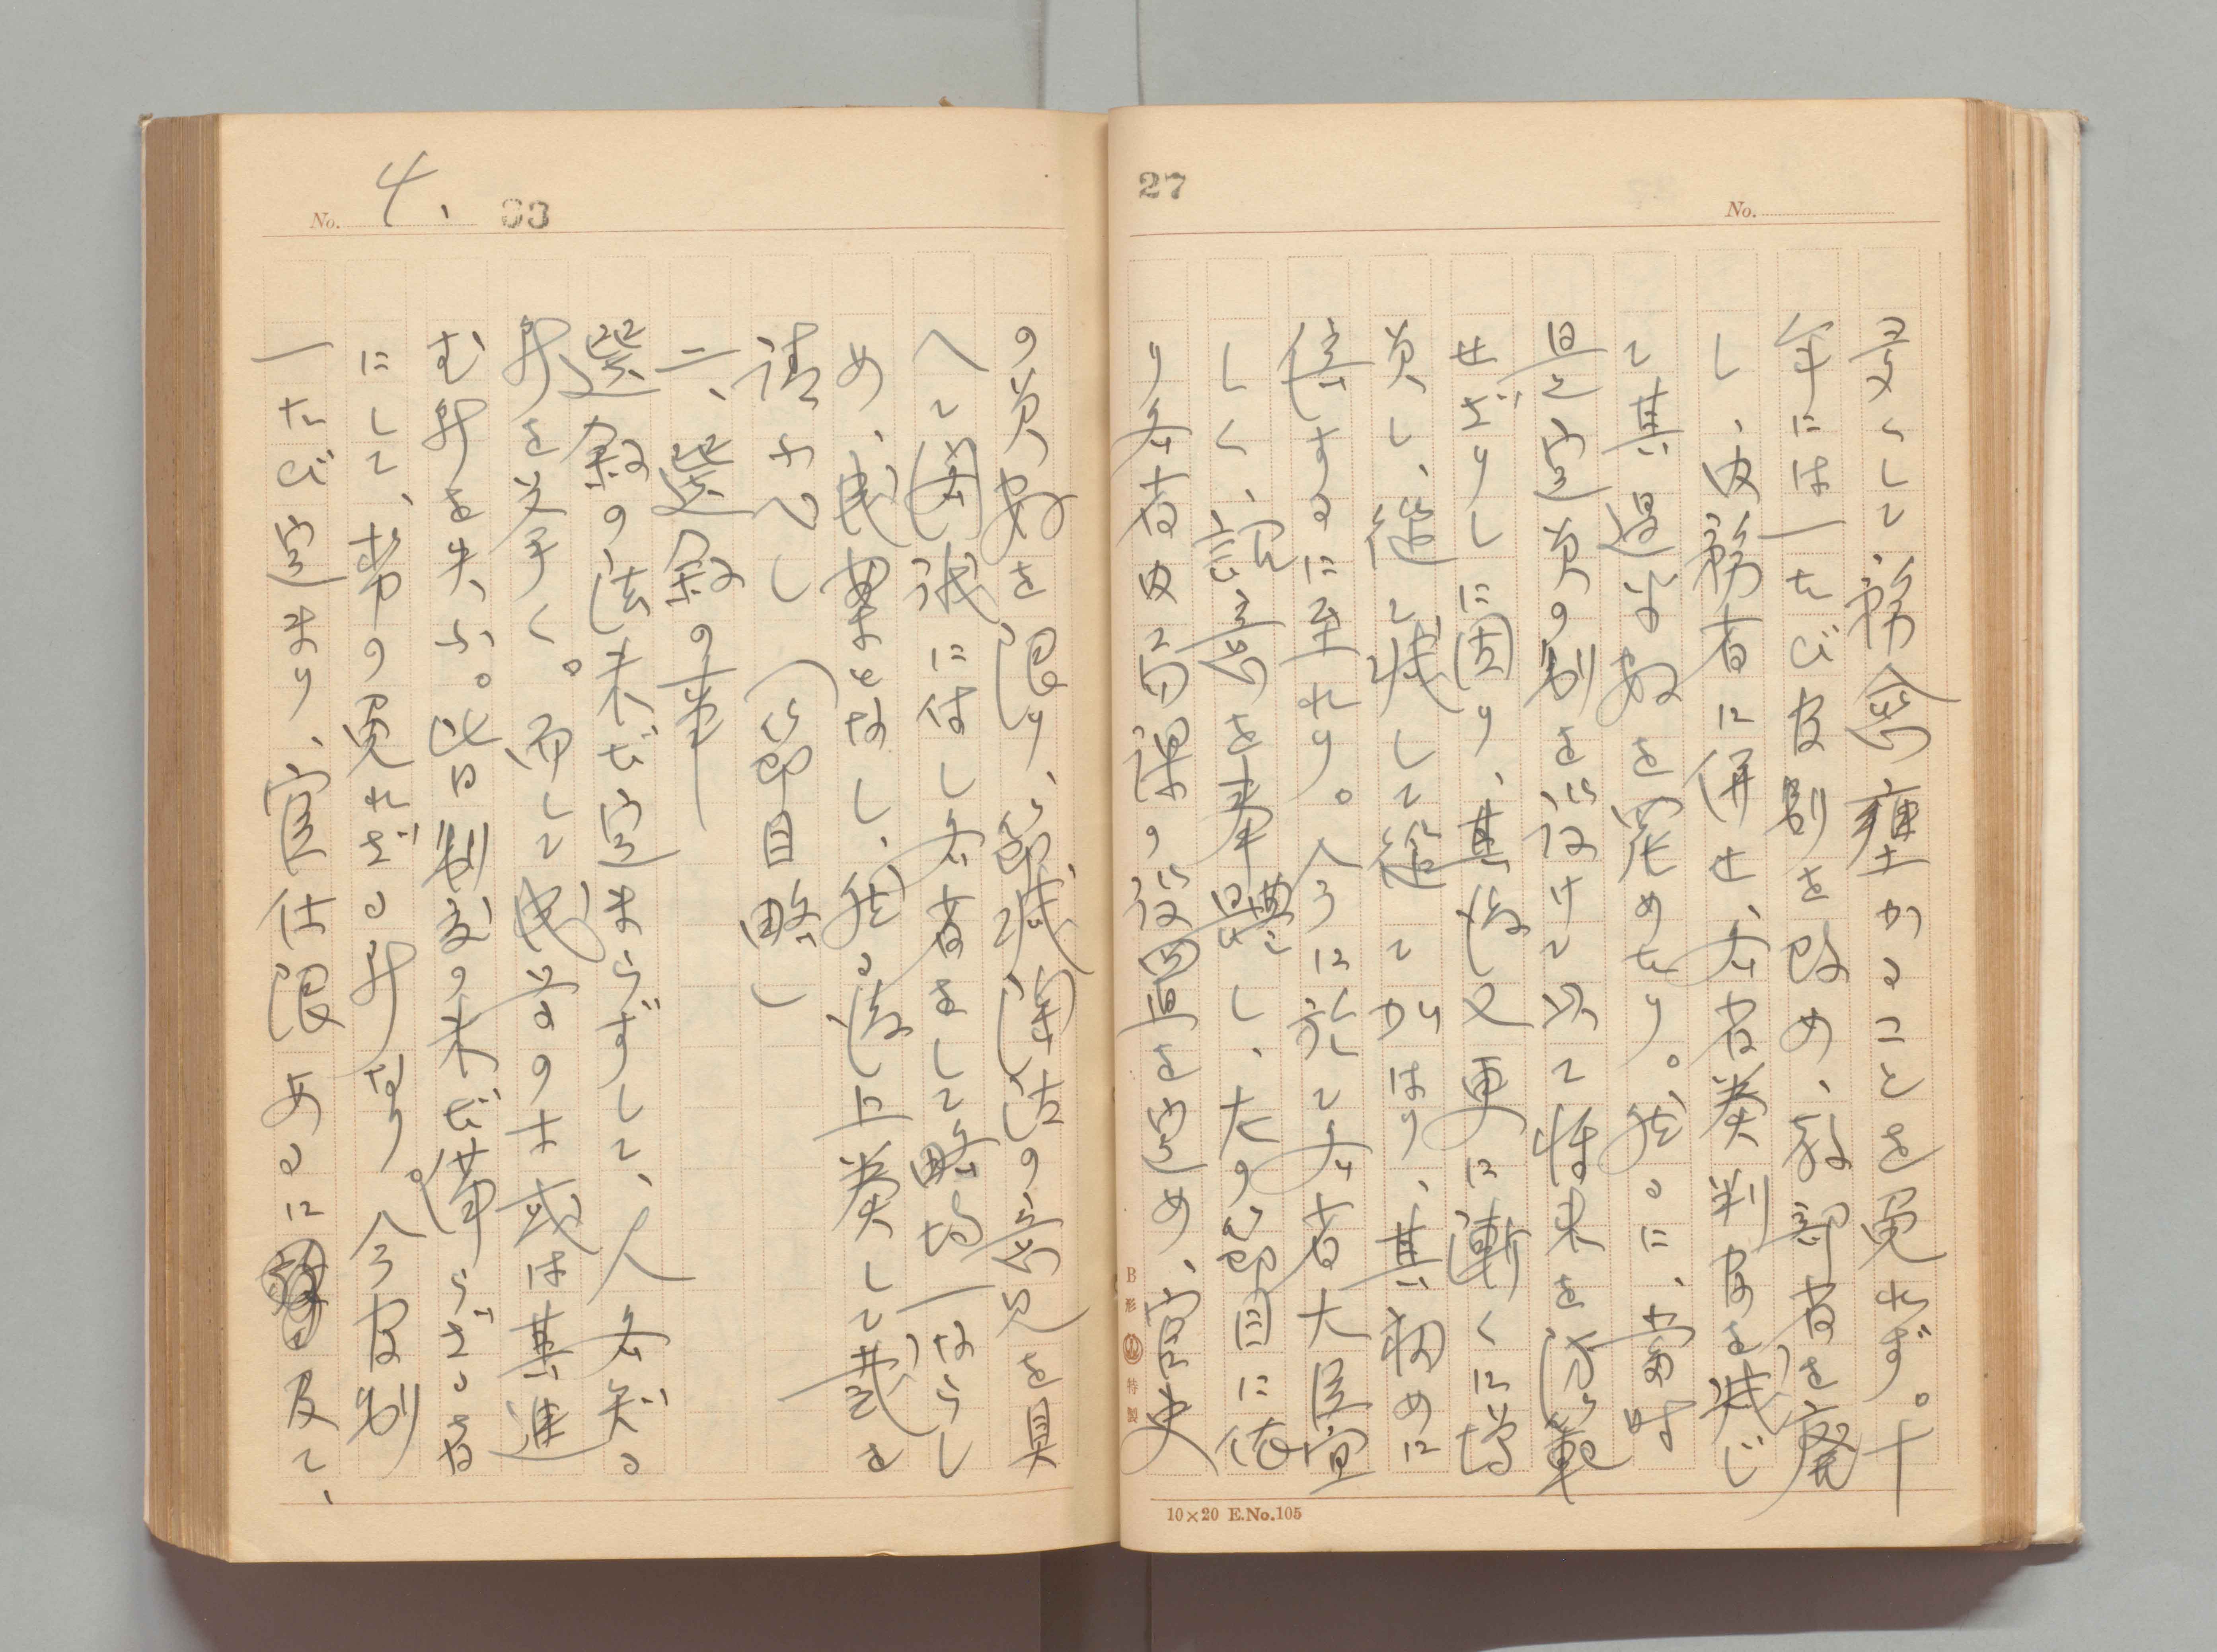 27
No.
受くして務合壅かることを免れず。十
年には一たび官制を改め、教部省を廃
し、内務省に併せ、各省奏判官を減じ
て其過半数を罷めたり。然るに、当時
是定員の制を設けて以て将来を防範
せざりしに因り、其後又更に漸くに増
員し、従て減して従て加はり、其初めに
倍するに至れり。今に於て各省大臣宜
しく、誠意を奉體し、左の節目に依
り各省内局課の設置を定め、官吏
B形 特製
10×20 E.No.105
No. 4、 33
の員数を限り、節減方法の意見を具
へて閣議に付し各省をして略均一ならし
め、成案となし、然る後上奏して裁を
請ふべし(節目略)
二、選叙の事
選叙の法未だ定まらずして、人各知る
所を挙く。而して成学の士或は其進
む所を失ふ。皆制度の未だ備らざる者
にして、勢の免れざる所なり。今官制
一たび定まり、官仕限あるに及て、